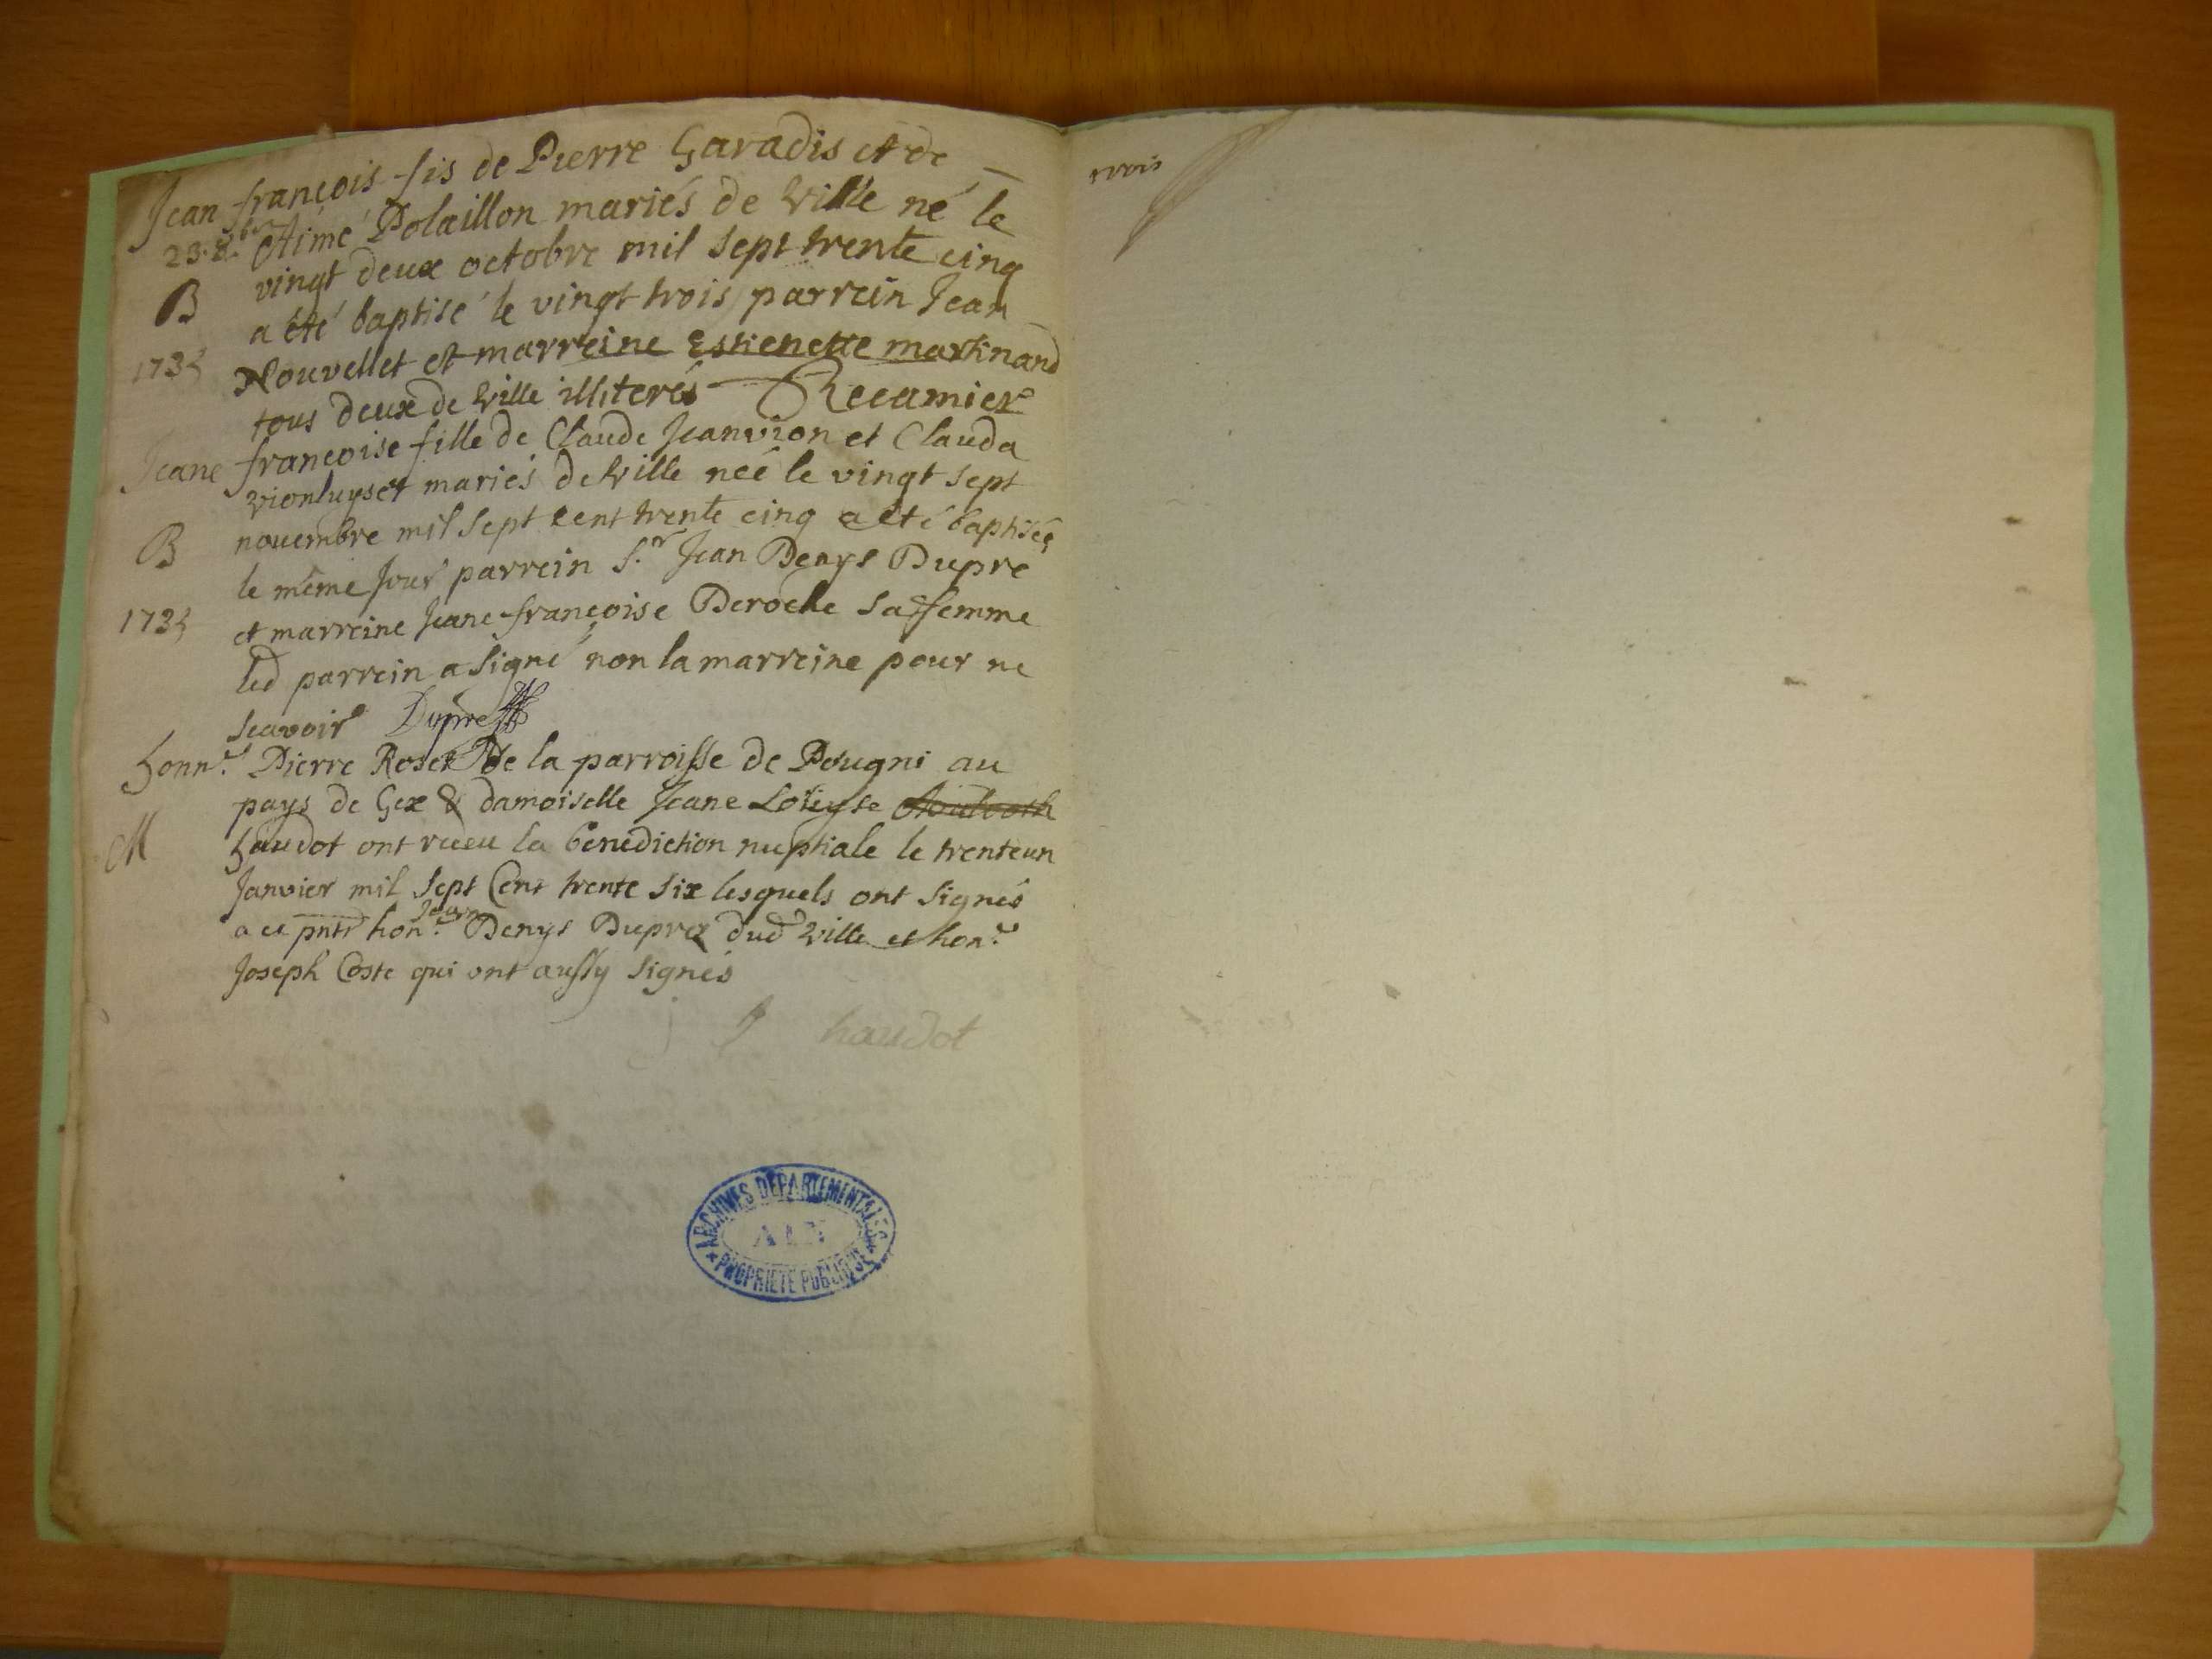 Jean françois fis de Pierre Garadis et de
23. 8.bre Aimé Polaillon mariés de Ville né le
vingt deux octobre mil sept trente cinq
B a été baptisé le vingt trois parrein Jean
1735 Nouvellet et marreine Estienette martinand
tous deux de Ville illiterés Recamier
Jeane françoise fille de Claude Jeanvion et Clauda
vionluyset mariés de Ville neé le vingt sept
B nouembre mil sept cent trente cinq a été baptisée
le même Jour parrein S.r Jean Denys Dupre
1735 et marreine Jeane françoise Deroche sa femme
led parrein a signé non la marreine pour ne
scavoir Dupre
honn.e Pierre Roset de la parroisse de Pougni au
pays de Gex & damoiselle Jeane Loüyse
M haudot ont receu la benediction nuptiale le trenteun
Janvier mil sept Cent trente six lesquels ont signés
a ce pnts hon.e Jean Denys Dupre dud Ville et hon.e
Joseph Coste qui ont aussy signés
J haudot
ARCHIVES DEPARTEMENTALES
AIN
PROPRIETE PUBLIQUE
trois